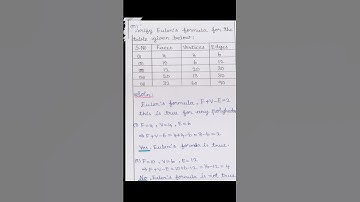 Verify Euler's formula for the
table given below:
S.No Faces Vertices Edges
(i) 4 4 6
(ii) 10 6 12
(iii) 12 20 30
(iv) 20 12 30
(v) 32 40
Soln:
Euler's formula, F+V-E=2
this is true for every polyhedra
(i) F=4, V=4, E=6
⇒ F+V-E=4+4-6=8-6=2
Yes, Euler's formula is true.
(ii) F=10, V=6, E=12
⇒ F+V-E=10+6-12=16-12=4
No, Euler's formula is not true